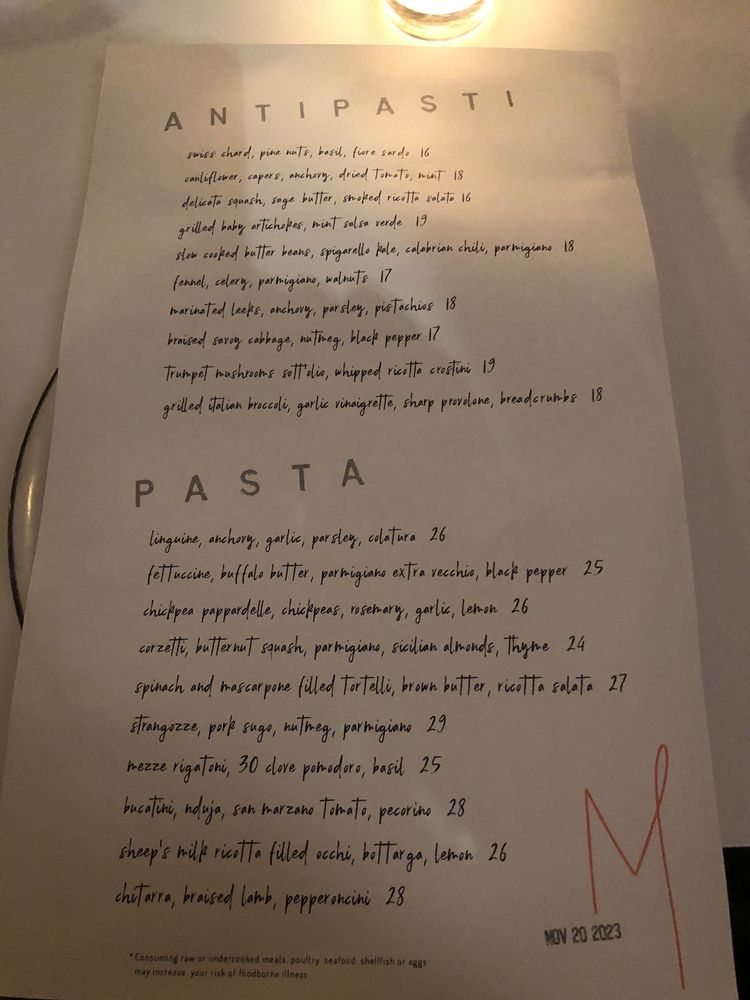 ANTIPASTI
swiss chard, pine nuts, basil, fiore sardo 16
cauliflower, capers, anchovy, dried tomato, mint 18
delicata squash, sage butter, smoked ricotta salata 16
grilled baby artichokes, mint salsa verde 19
slow cooked butter beans, spigarello kale, calabrian chili, parmigiano 18
fennel, celery, parmigiano, walnuts 17
marinated leeks, anchovy, parsley, pistachios 18
braised savoy cabbage, nutmeg, black pepper 17
trumpet mushrooms sott'olio, whipped ricotta crostini 19
grilled italian broccoli, garlic vinaigrette, sharp provolone, breadcrumbs 18
PASTA
linguine, anchovy, garlic, parsley, colatura 26
fettuccine, buffalo butter, parmigiano extra vecchio, black pepper 25
chickpea pappardelle, chickpeas, rosemary, garlic, lemon 26
corzetti, butternut squash, parmigiano, sicilian almonds, thyme 24
spinach and mascarpone filled tortelli, brown butter, ricotta salata 27
strangozze, pork sugo, nutmeg, parmigiano 29
mezze rigatoni, 30 clove pomodoro, basil 25
bucatini, nduja, san marzano tomato, pecorino 28
sheep's milk ricotta filled occhi, bottarga, lemon 26
chitarra, braised lamb, pepperoncini 28
M
NOV 20 2023
* Consuming raw or undercooked meats, poultry, seafood, shellfish or eggs
may increase your risk of foodborne illness